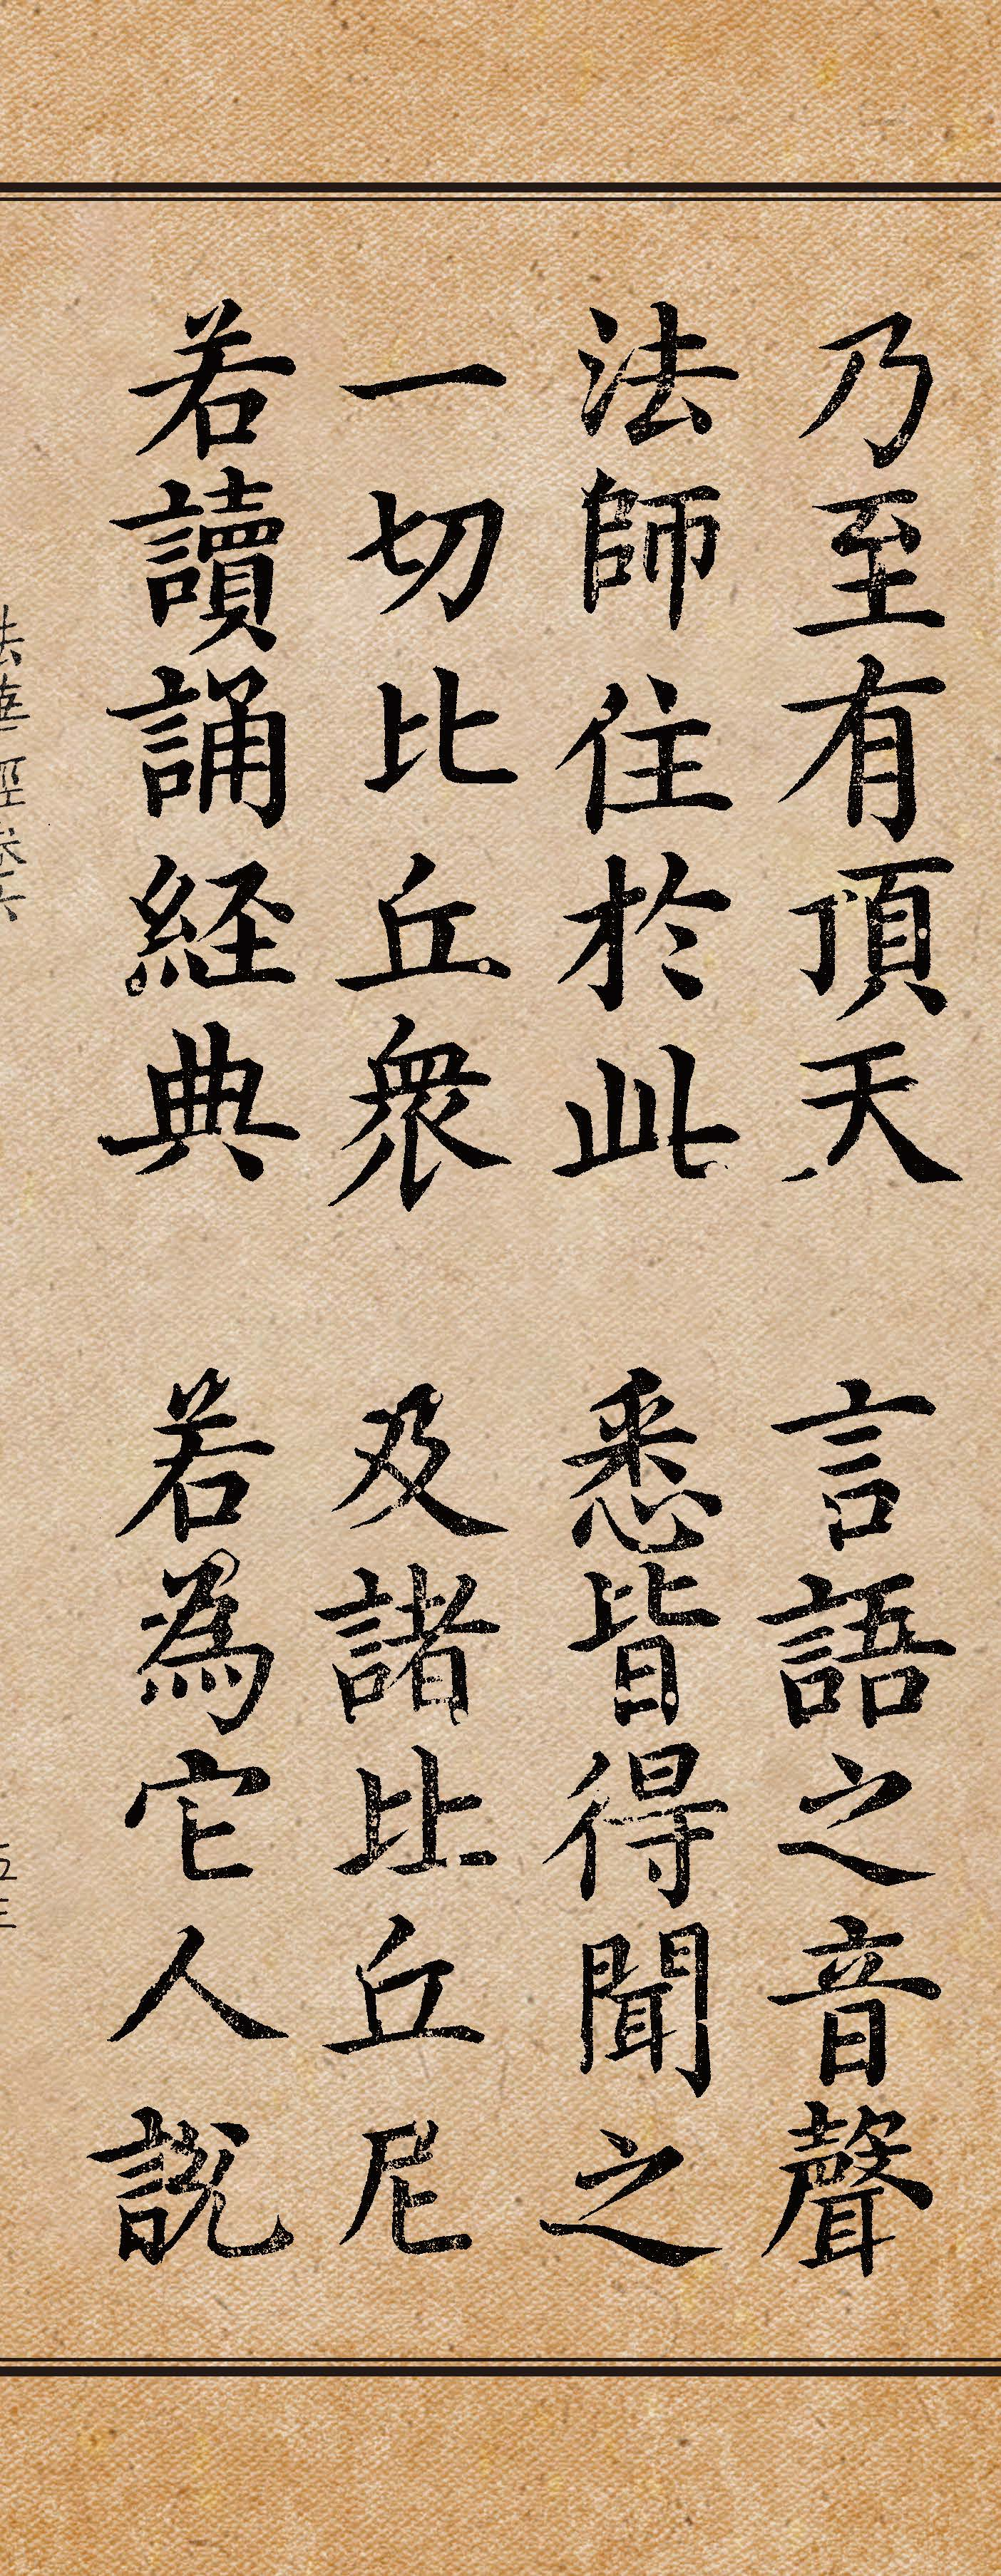 乃至有頂天 言語之音聲
法師住於此 悉皆得聞之
一切比丘衆 及諸比丘尼
若讀誦経典 若為它人説
法華經卷六 五三